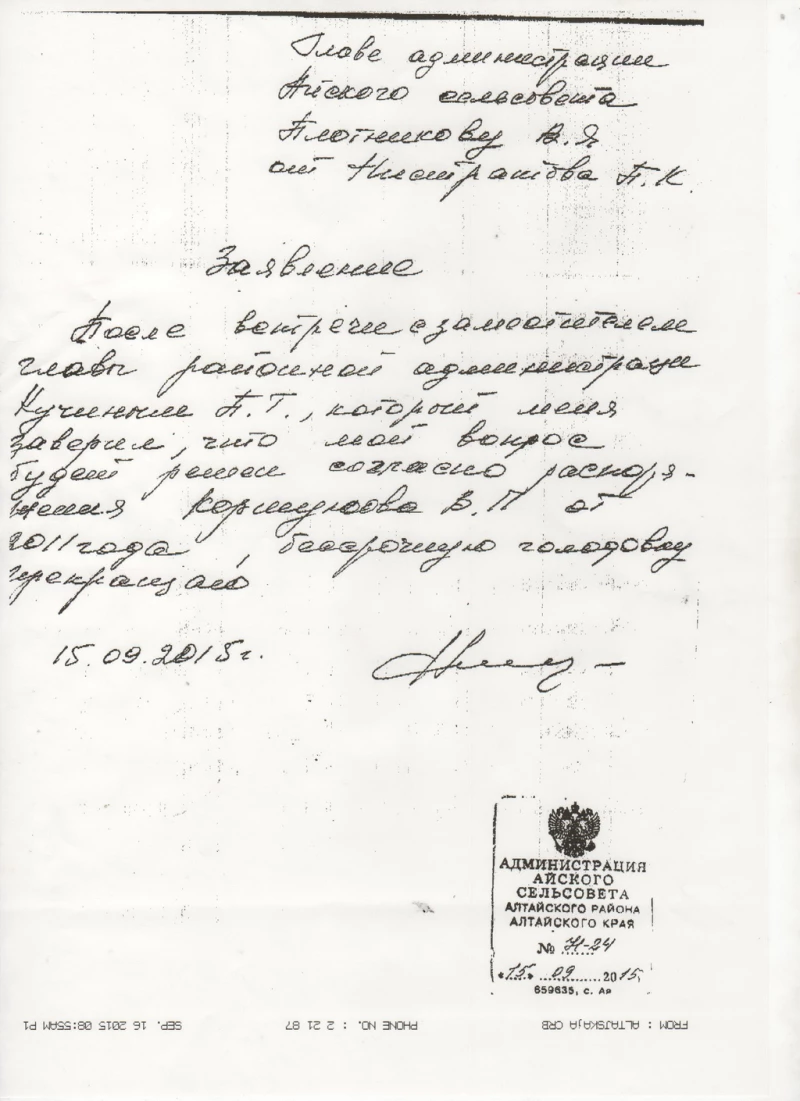 Главе администрации
Айского сельсовета
Плотникову В.Я
от Нистратова П.К.
Заявление
После встречи с заместителем
главы районной администраци
Кучиным П.Т., который меня
заверил, что мой вопрос
будет решен согласно распоря-
жения Коршунова В.П от
2011 года, бессрочную голодовку
прекращаю
15.09.2015г.
АДМИНИСТРАЦИЯ
АЙСКОГО
СЕЛЬСОВЕТА
АЛТАЙСКОГО РАЙОНА
АЛТАЙСКОГО КРАЯ
№ Н-24
«15» 09 2015
659635, с. Ая
FROM : ALTAJSKAJA CRB PHONE NO. : 2 21 87 SEP. 16 2015 08:55AM P1